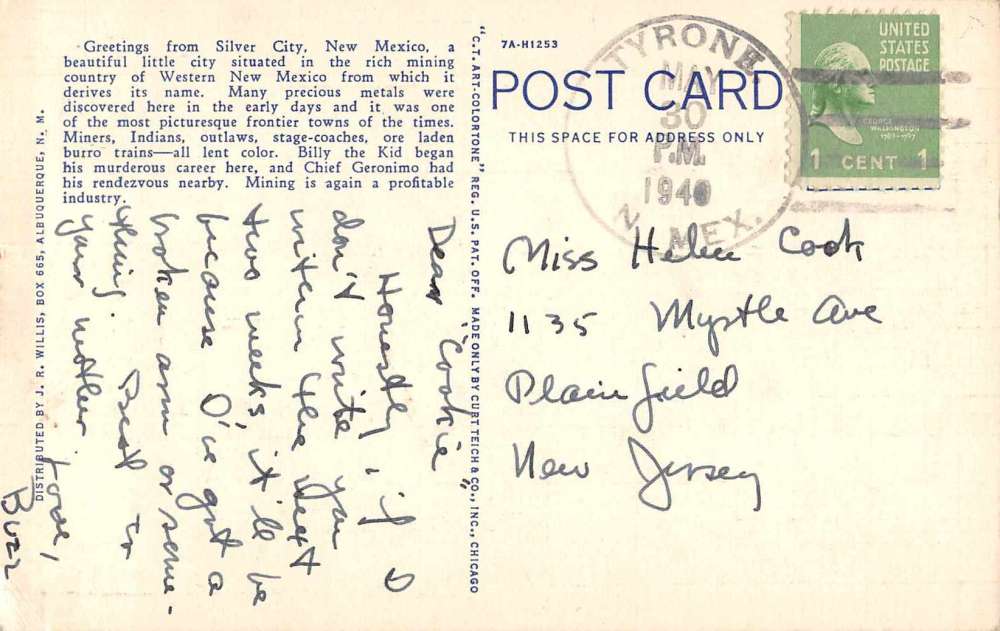 Greetings from Silver City, New Mexico, a
beautiful little city situated in the rich mining
country of Western New Mexico from which it
derives its name. Many precious metals were
discovered here in the early days and it was one
of the most picturesque frontier towns of the times.
Miners, Indians, outlaws, stage-coaches, ore laden
burro trains—all lent color. Billy the Kid began
his murderous career here, and Chief Geronimo had
his rendezvous nearby. Mining is again a profitable
industry.
DISTRIBUTED BY J. R. WILLIS, BOX 665, ALBUQUERQUE, N. M.
Dear "Cookie"
Honestly, if I
don't write you
within the next
two weeks, it'll be
because I've got a
broken arm or some-
thing. Best to
your mother
Love,
Buzz
"C. T. ART-COLORTONE" REG. U. S. PAT. OFF. MADE ONLY BY CURT TEICH & CO., INC., CHICAGO
7A-H1253
POST CARD
THIS SPACE FOR ADDRESS ONLY
TYRONE
MAY
30
P.M.
1940
N. MEX.
UNITED
STATES
POSTAGE
GEORGE
WASHINGTON
1789-1797
1 CENT 1
Miss Helen Cook
1135 Myrtle Ave
Plainfield
New Jersey